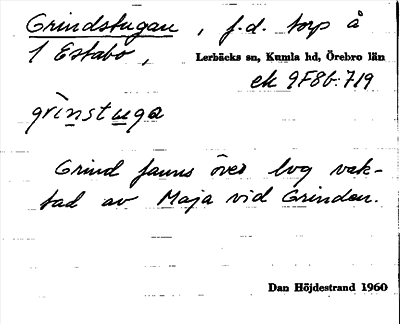 Grindstugan, f.d. torp å
1 Estabo,
Lerbäcks sn, Kumla hd, Örebro län
ek 9F8b:719
grìnstuga
Grind fanns över lvg vak-
tad av Maja vid Grinden.
Dan Höjdestrand 1960